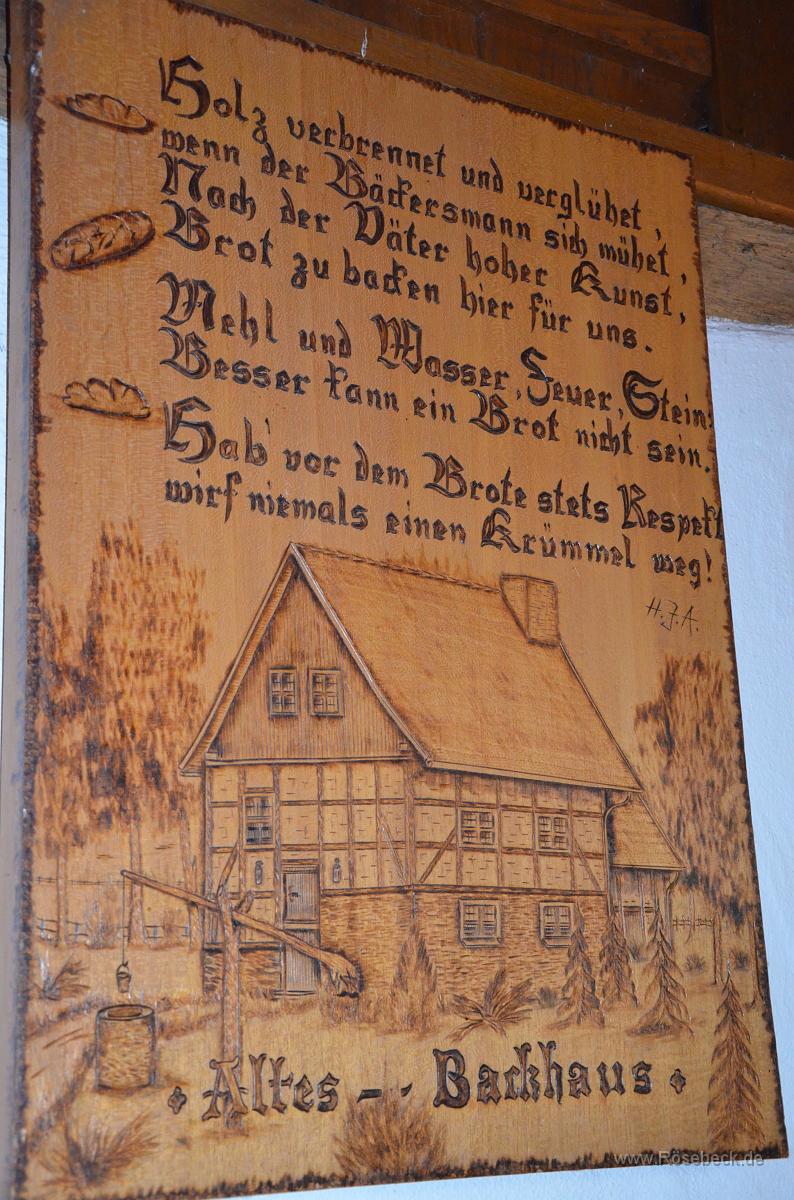 Holz verbrennet und verglühet,
wenn der Bäckersmann sich mühet,
Nach der Väter hoher Kunst,
Brot zu backen hier für uns.
Mehl und Wasser, Feuer, Stein:
Besser kann ein Brot nicht sein.
Hab' vor dem Brote stets Respekt
wirf niemals einen Krümmel weg!
H.J.A.
Altes - Backhaus
www.Rösebeck.de